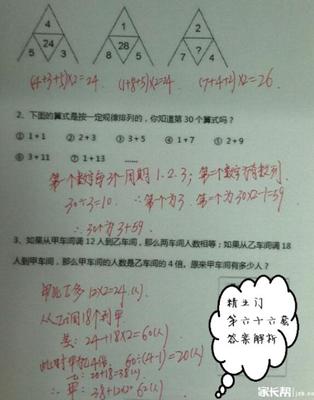 4 1 2
24 28 ?
5 3 8 5 7 4
(4+3+5)×2=24 (1+8+5)×2=24 (7+4+2)×2=26
2、下面的算式是按一定规律排列的,你知道第 30 个算式吗?
① 1+1 ② 2+3 ③ 3+5 ④ 1+7 ⑤ 2+9
⑥ 3+11 ⑦ 1+13 ……
第一个数字每3个一周期 1.2.3;第二个数字为奇数列
30÷3=10 ∴第一个为3 第二个为30×2-1=59
∴30个为3+59
3、如果从甲车间调 12 人到乙车间,那么两车间人数相等;如果从乙车间调 18
人到甲车间,那么甲车间的人数是乙车间的 4 倍。原来甲车间有多少人?
甲比乙多12×2=24(人)
从乙调18个到甲
差:24+18×2=60(人)
此时甲乙4倍 60÷(4-1)=20(人)
乙:20+18=38(人)
∴甲:38+12×2=62(人)
精生门
第六十六套
答案解析
家长帮 jzb.com